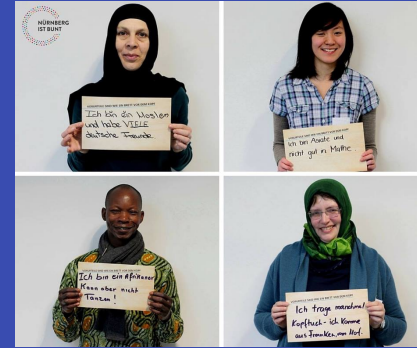 NÜRNBERG
IST BUNT
Ich bin ein Moslem
und habe VIELE
deutsche Freunde.
Ich bin Asiate und
nicht gut in Mathe.
Ich bin ein Afrikaner
Kann aber nicht
Tanzen!
Ich trage manchmal
Kopftuch - ich komme
aus Franken, Hof.